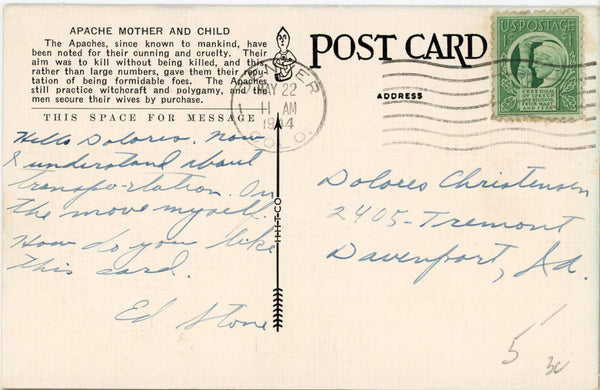 APACHE MOTHER AND CHILD
The Apaches, since known to mankind, have
been noted for their cunning and cruelty. Their
aim was to kill without being killed, and this,
rather than large numbers, gave them their repu-
tation of being formidable foes. The Apaches
still practice witchcraft and polygamy, and the
men secure their wives by purchase.
THIS SPACE FOR MESSAGE
Hello Dolores. Now
I understand about
transportation. On
the move myself.
How do you like
this card.
Ed Stone
H-H-T-CO
POST CARD
ADDRESS
DENVER
MAY 22
11 AM
1944
COLO.
U.S. POSTAGE
1¢
FREEDOM
OF SPEECH
AND RELIGION
FROM WANT
AND FEAR
Dolores Christensen
2405-Tremont
Davenport, Ia.
5
3c